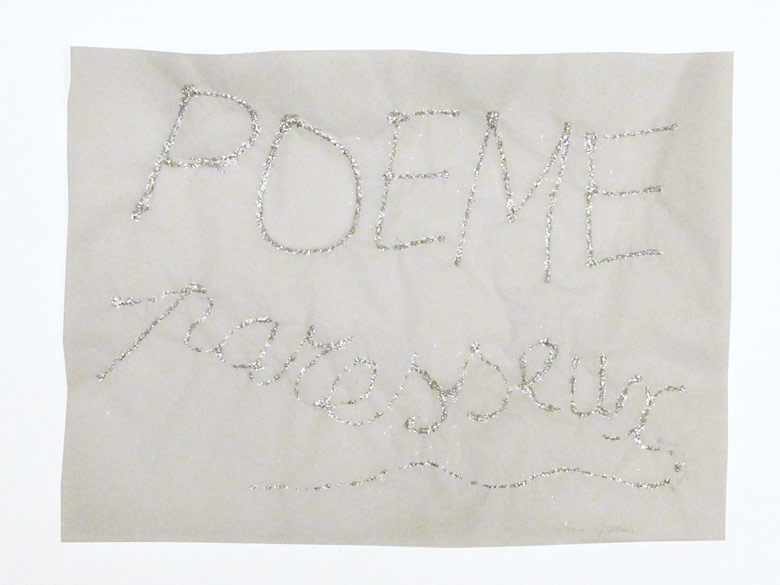 POEME
paresseux